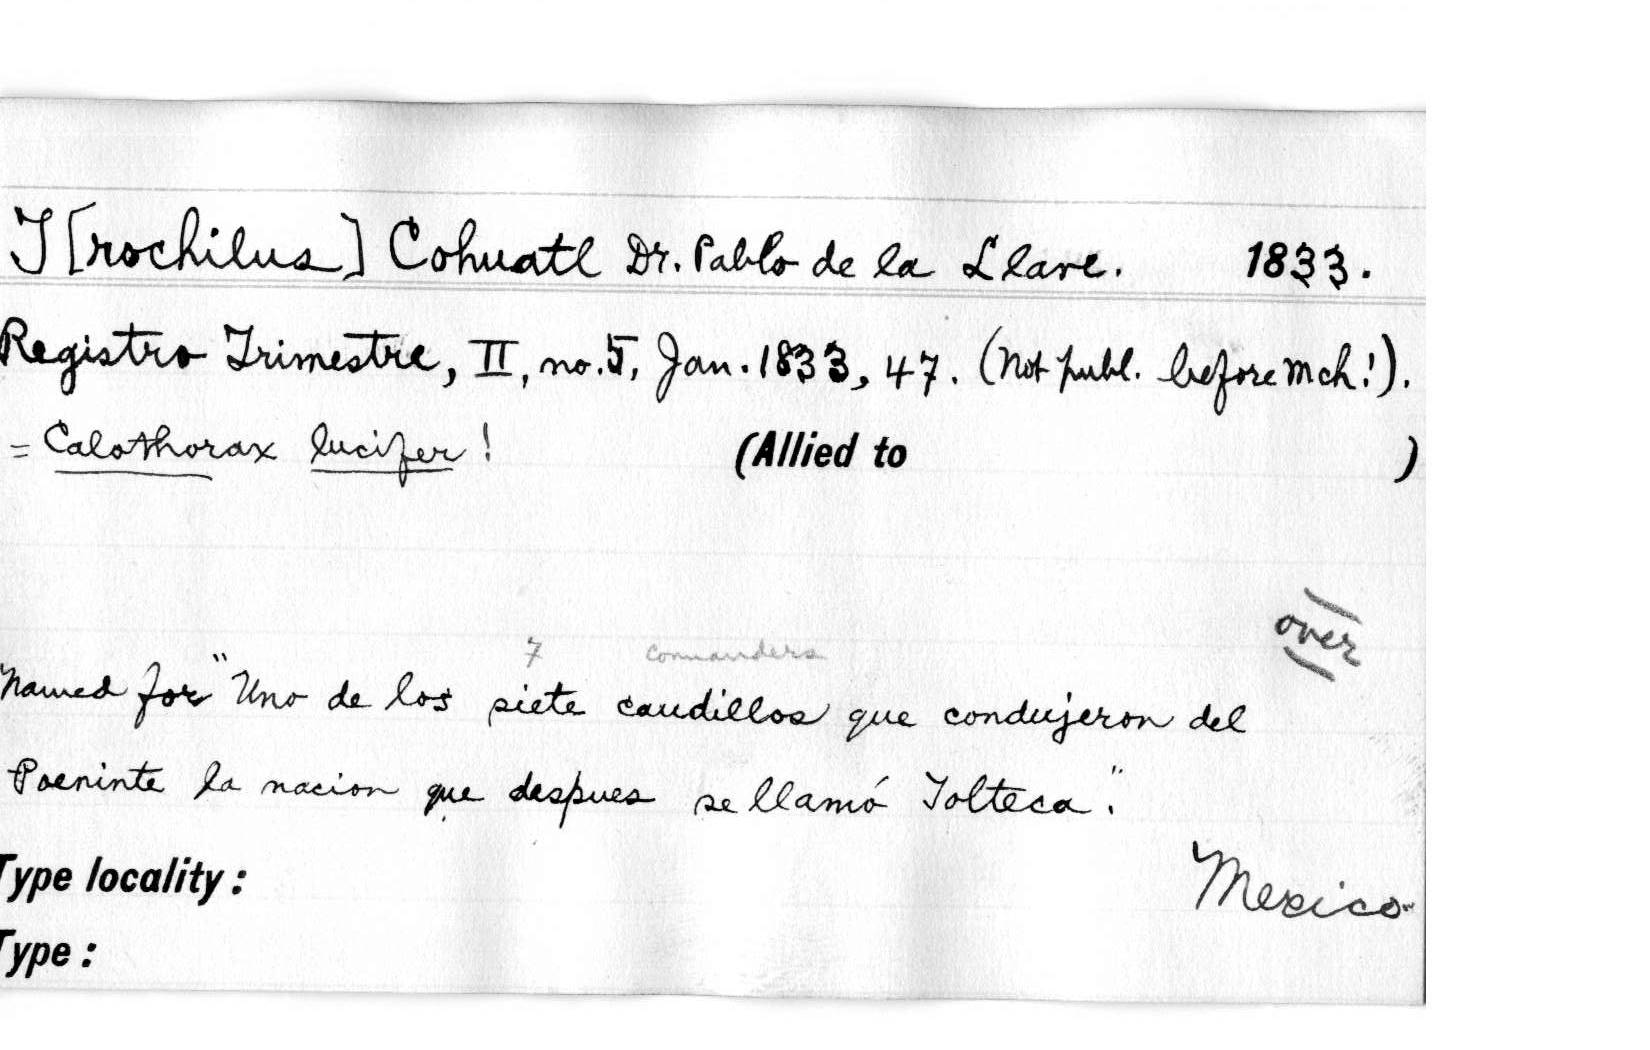 T[rochilus] Cohuatl Dr. Pablo de la Llave. 1833.
Registro Trimestre, II, no. 5, Jan. 1833, 47. (Not publ. before Mch!).
= Calothorax lucifer! (Allied to )
over
7 commanders
Named for "Uno de los siete caudillos que condujeron del
Poeninte la nacion que despues se llamó Tolteca."
Type locality:
Mexico
Type: